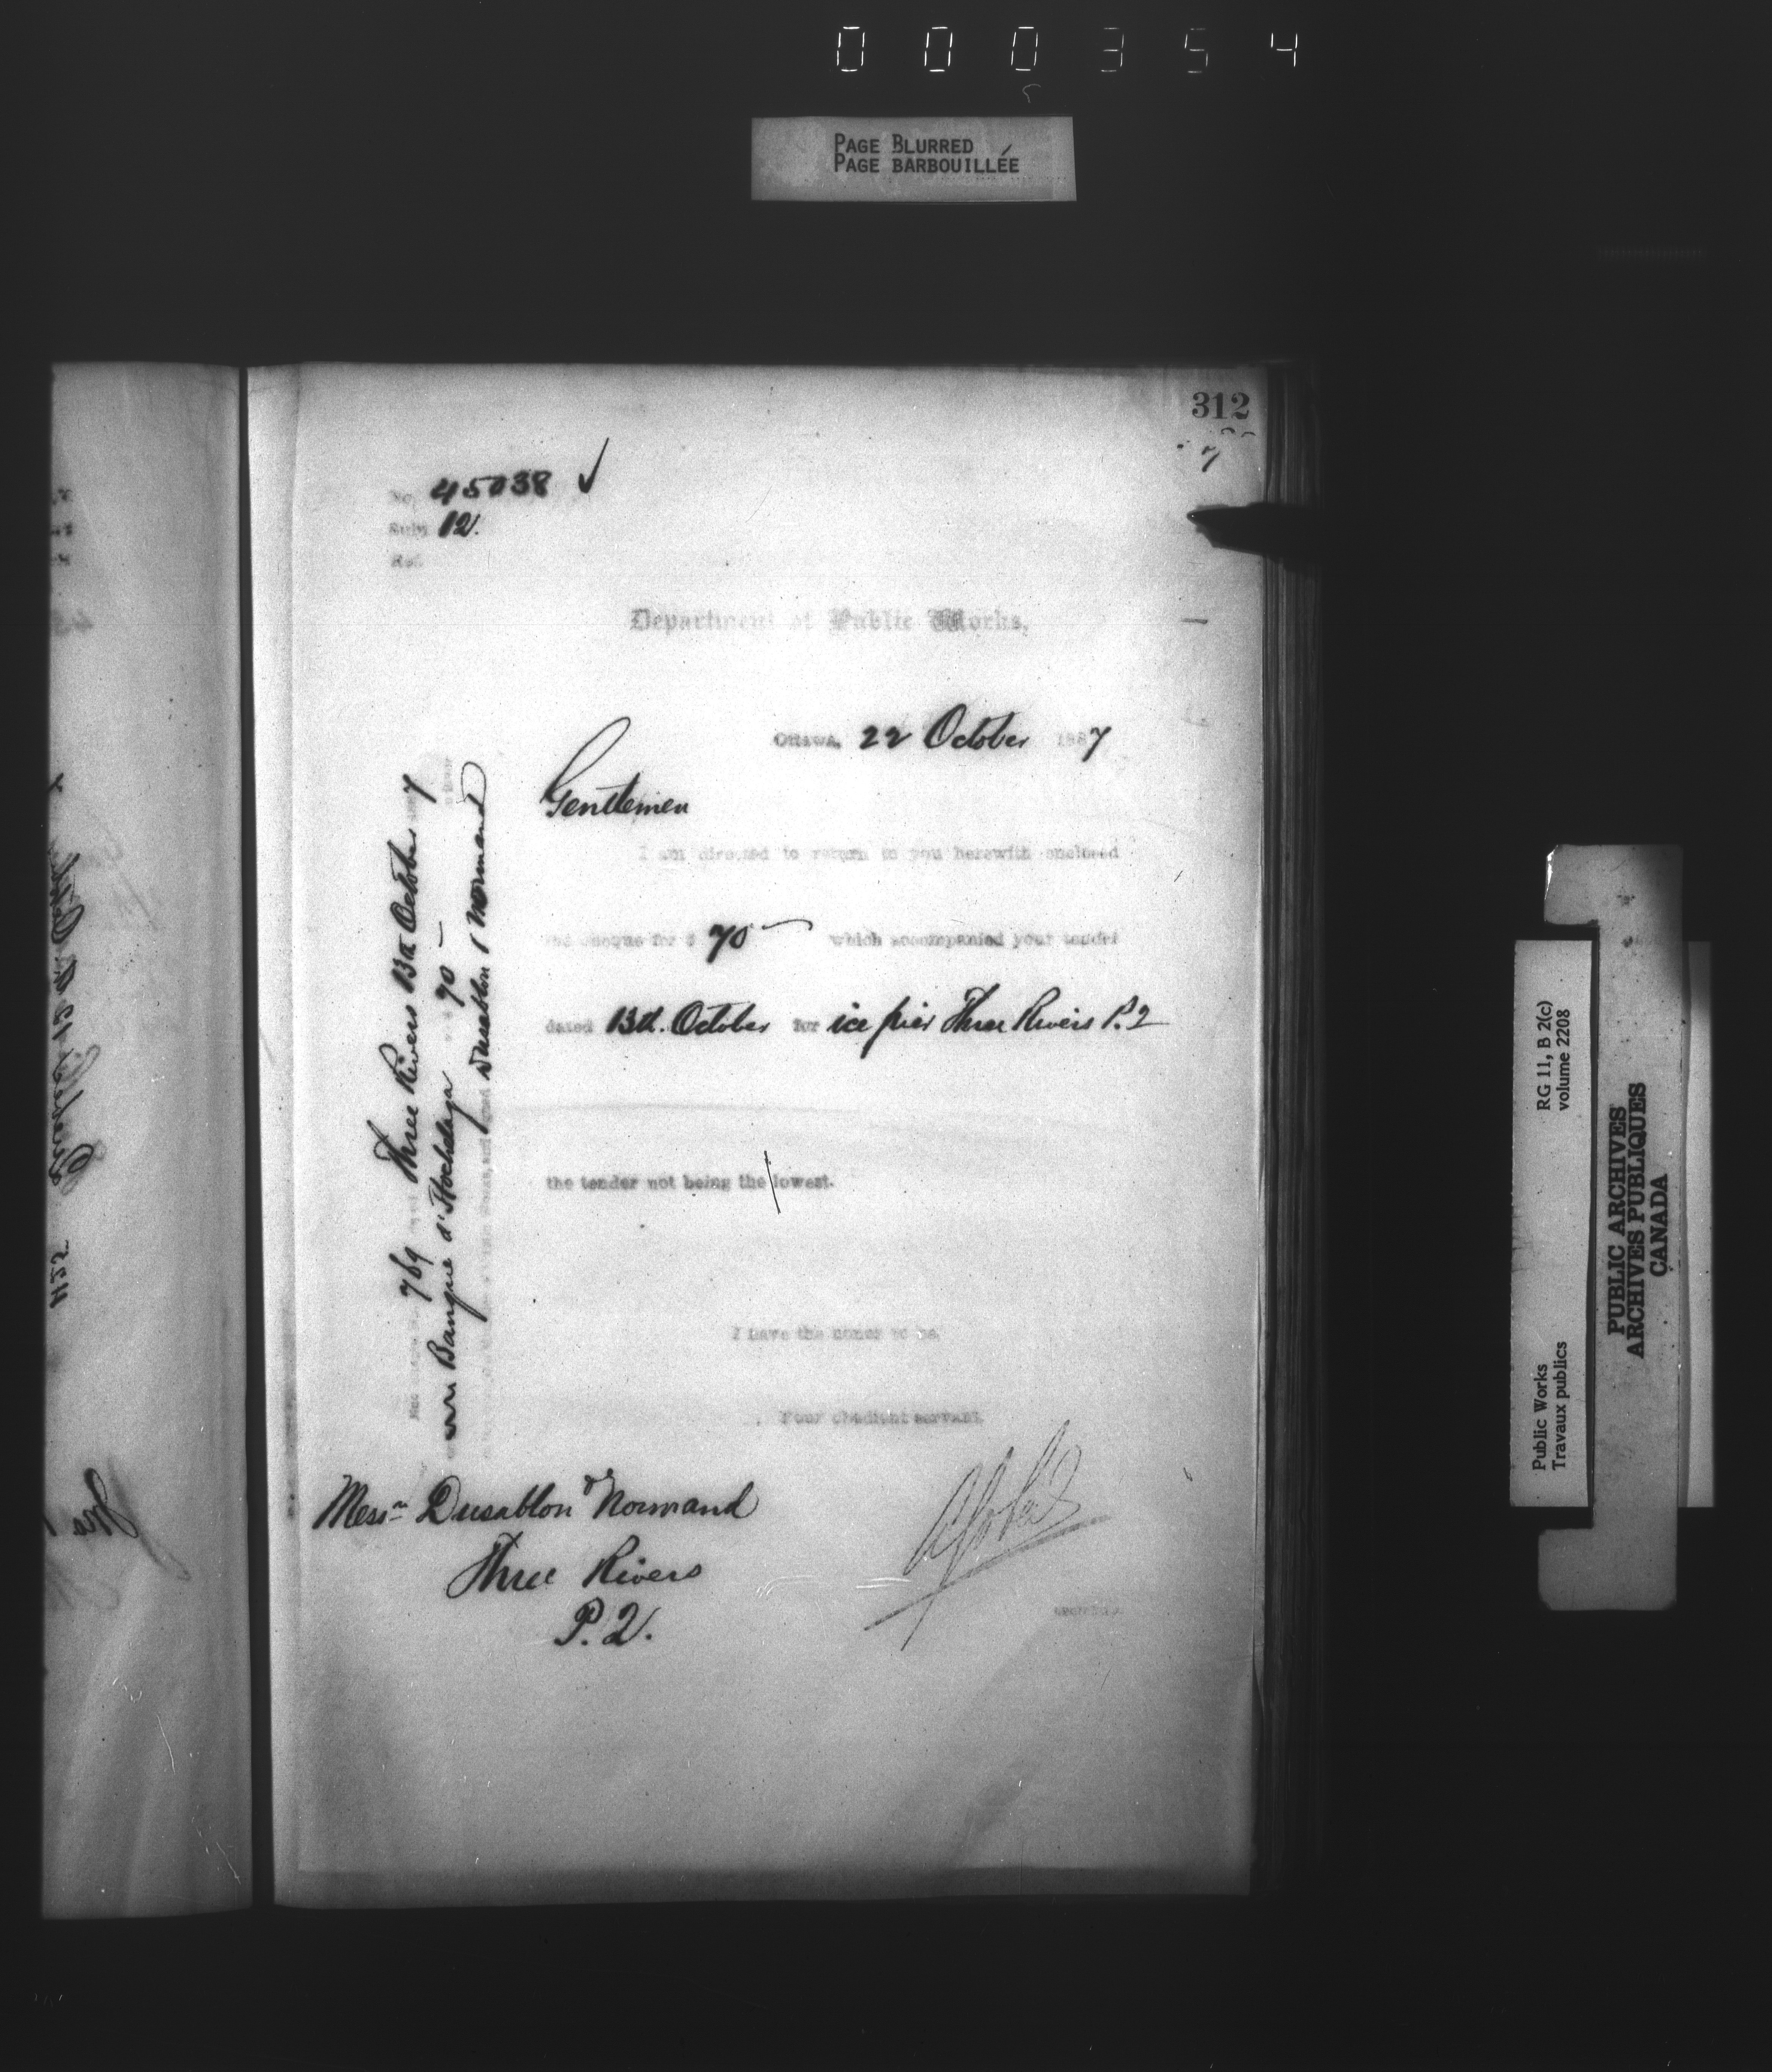 000354
PAGE BLURRED
PAGE BARBOUILLÉE
312
7
No. 45038 ✓
Subj. 12.
Ref.
Department of Public Works,
Ottawa, 22 October 1887
Gentlemen
I am directed to return to you herewith enclosed
cheque for $ 70 which accompanied your tender
dated 13th. October for ice pier Three Rivers P.Q
the tender not being the lowest.
I have the honor to be,
Your obedient servant,
Messrs Dusablon & Normand
Three Rivers
P.Q.
769 Three Rivers 13th October 7
Banque d'Hochelaga 70
signed Dusablon & Normand
Public Works
Travaux publics
RG 11, B 2(c)
volume 2208
PUBLIC ARCHIVES
ARCHIVES PUBLIQUES
CANADA